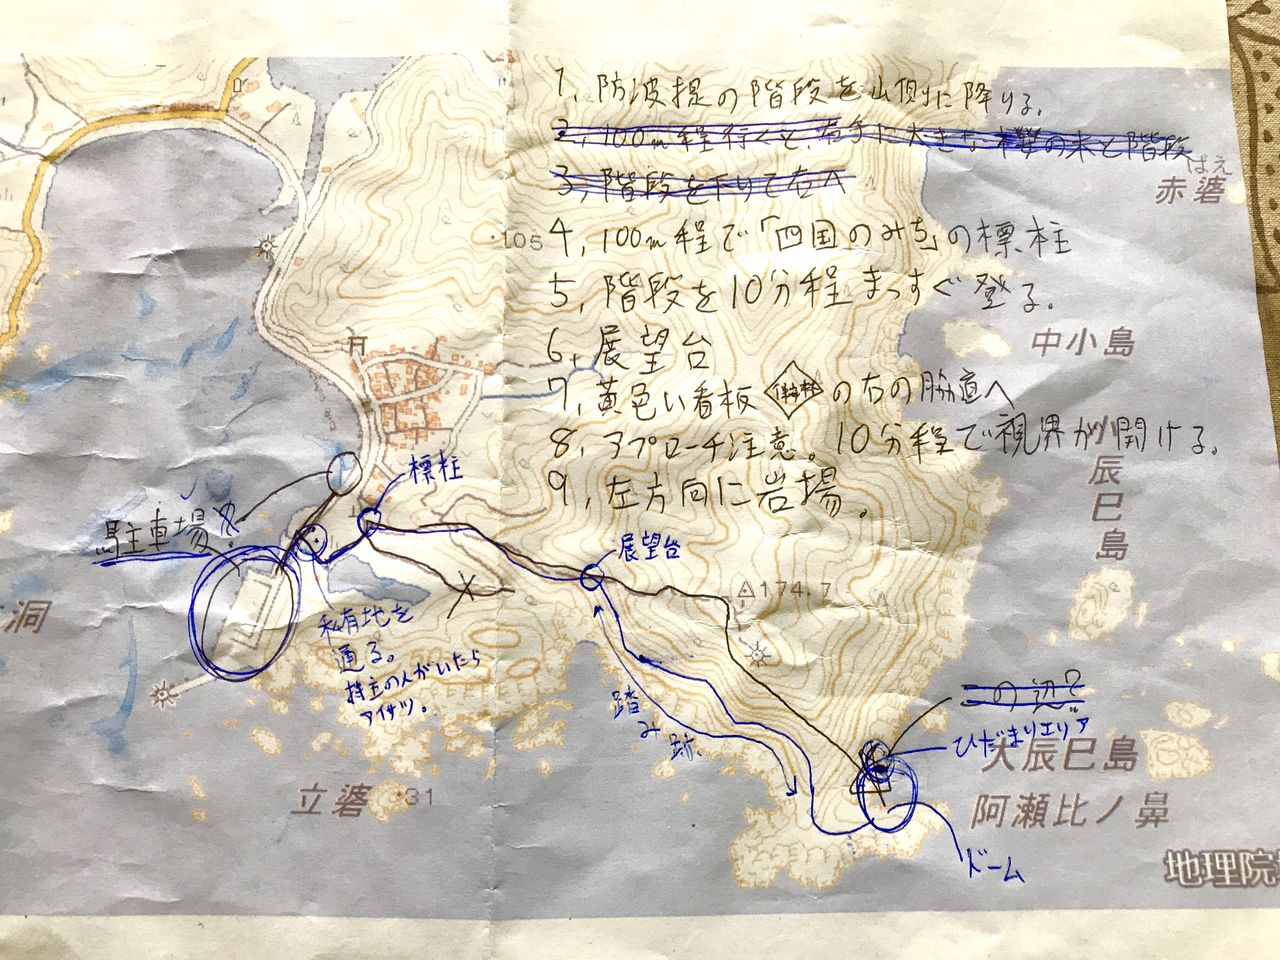 1, 防波提の階段を山側に降りる。
2, 100m程行くと、右手に大きな の木と階段
3, 階段を下りて右へ
はえ
赤碆
・105
4, 100m程で「四国のみち」の標柱
5, 階段を10分程まっすぐ登る。
6, 展望台
中小島
7, 黄色い看板 の右の脇道へ
8, アプローチ注意。10分程で視界が開ける。
小辰巳島
9, 左方向に岩場。
標柱
駐車場?
展望台
174.7
洞
私有地を
通る。
持主の人がいたら
アイサツ。
踏み跡
の辺?
ひだまりエリア
大辰巳島
立碆
・31
阿瀬比ノ鼻
ドーム
地理院